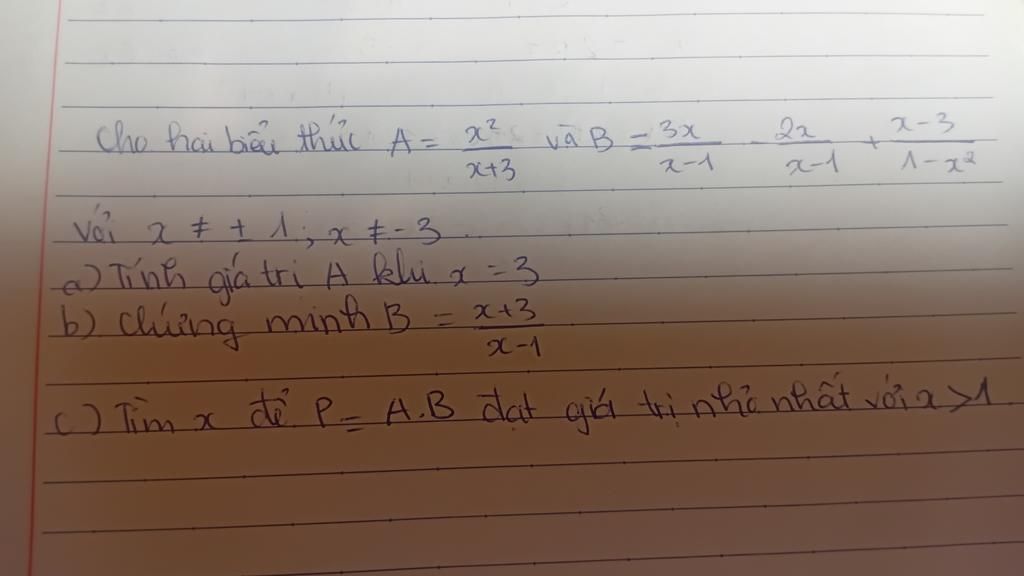 Cho hai biểu thức A = x²/(x+3) và B = 3x/(x-1) - 2x/(x-1) + (x-3)/(1-x²)
Với x ≠ ± 1; x ≠ -3
a) Tính giá trị A khi x = 3
b) Chứng minh B = (x+3)/(x-1)
c) Tìm x để P = A.B đạt giá trị nhỏ nhất với x > 1